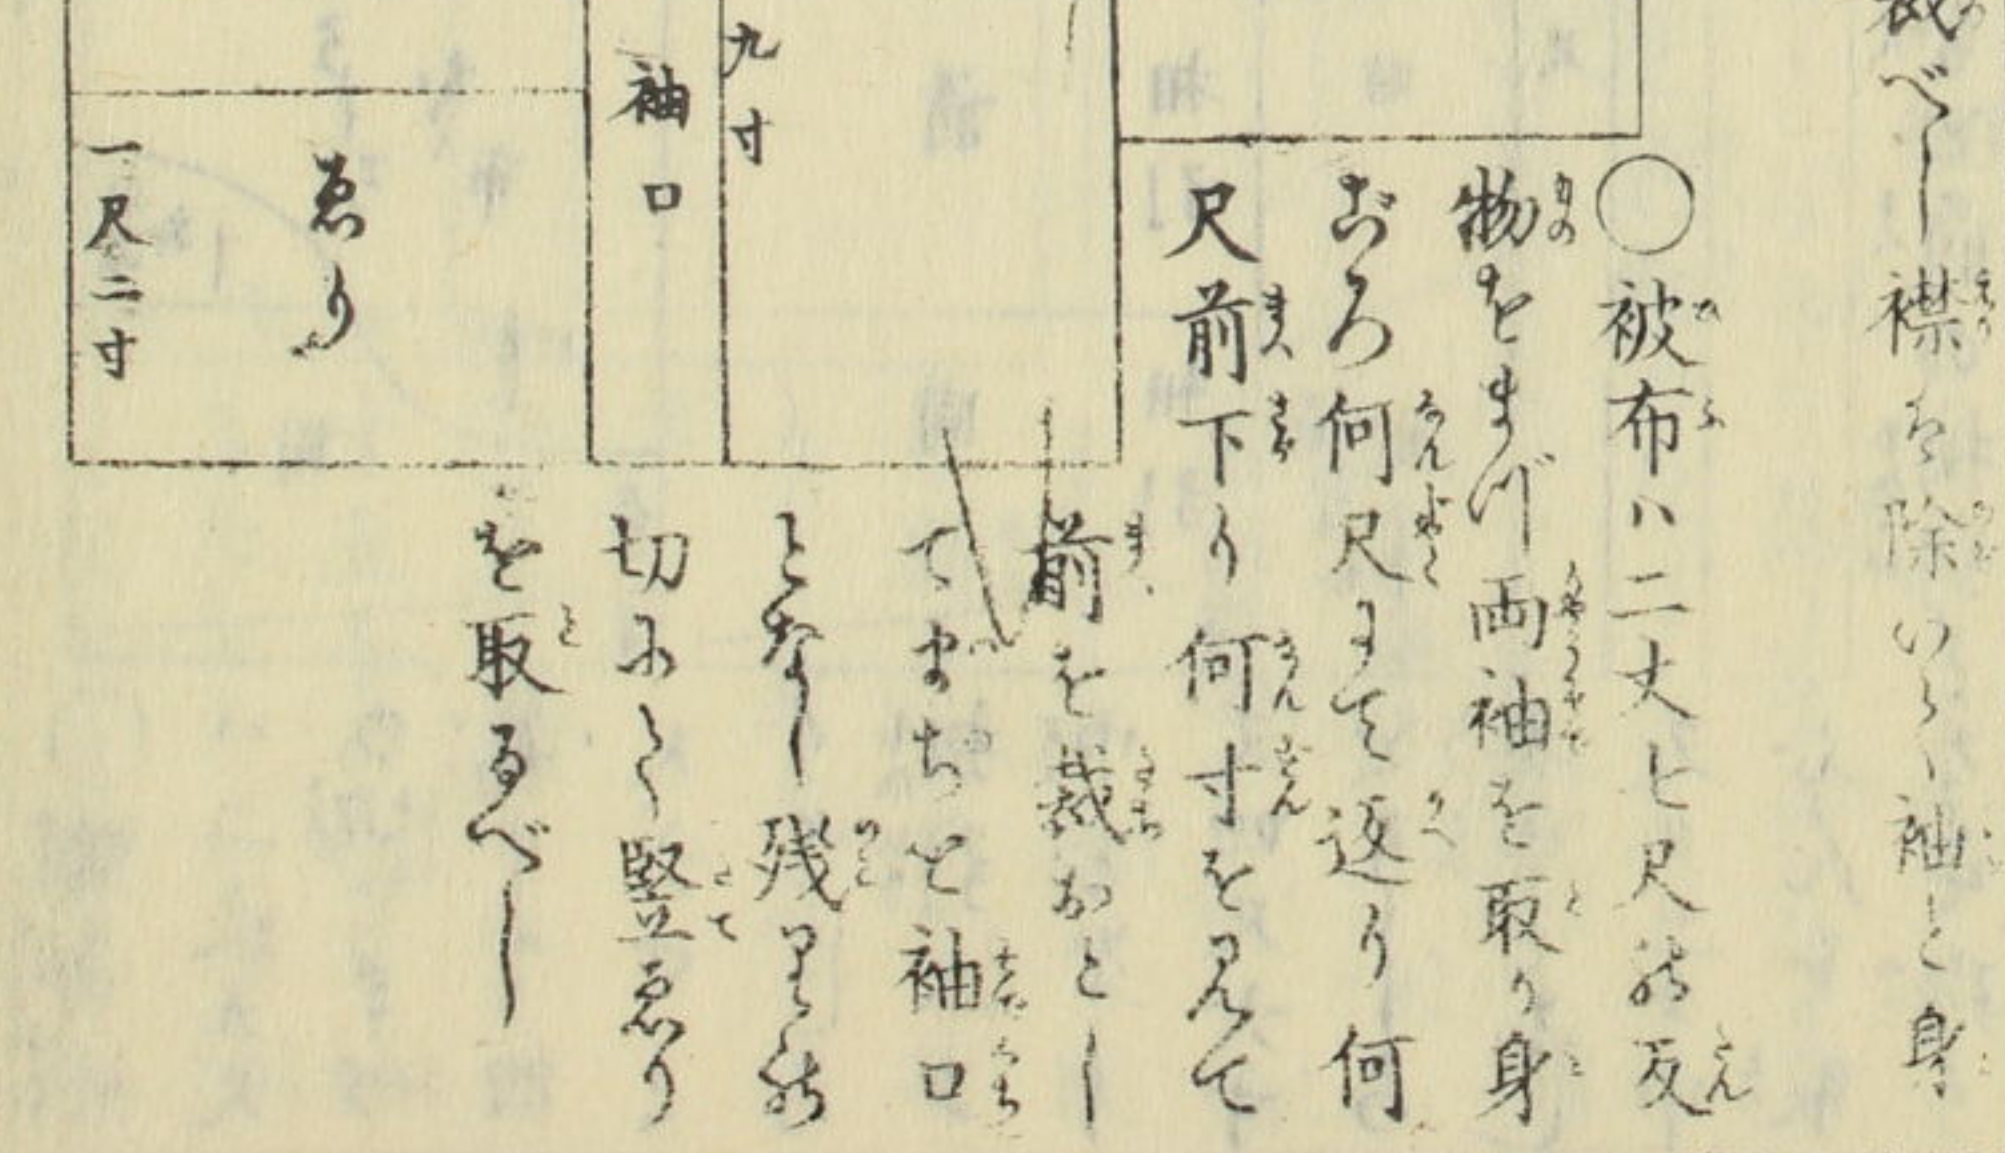 裁べし襟を除いらく袖と身
○被布ハ二丈七尺の反
物をまづ両袖を取り身
ごろ何尺にて返り何
尺前下り何寸を見て
前を裁おとし
てまちと袖口
となし残りの
切にて竪ゑり
を取るべし
九寸
袖口
ゑり
一尺二寸